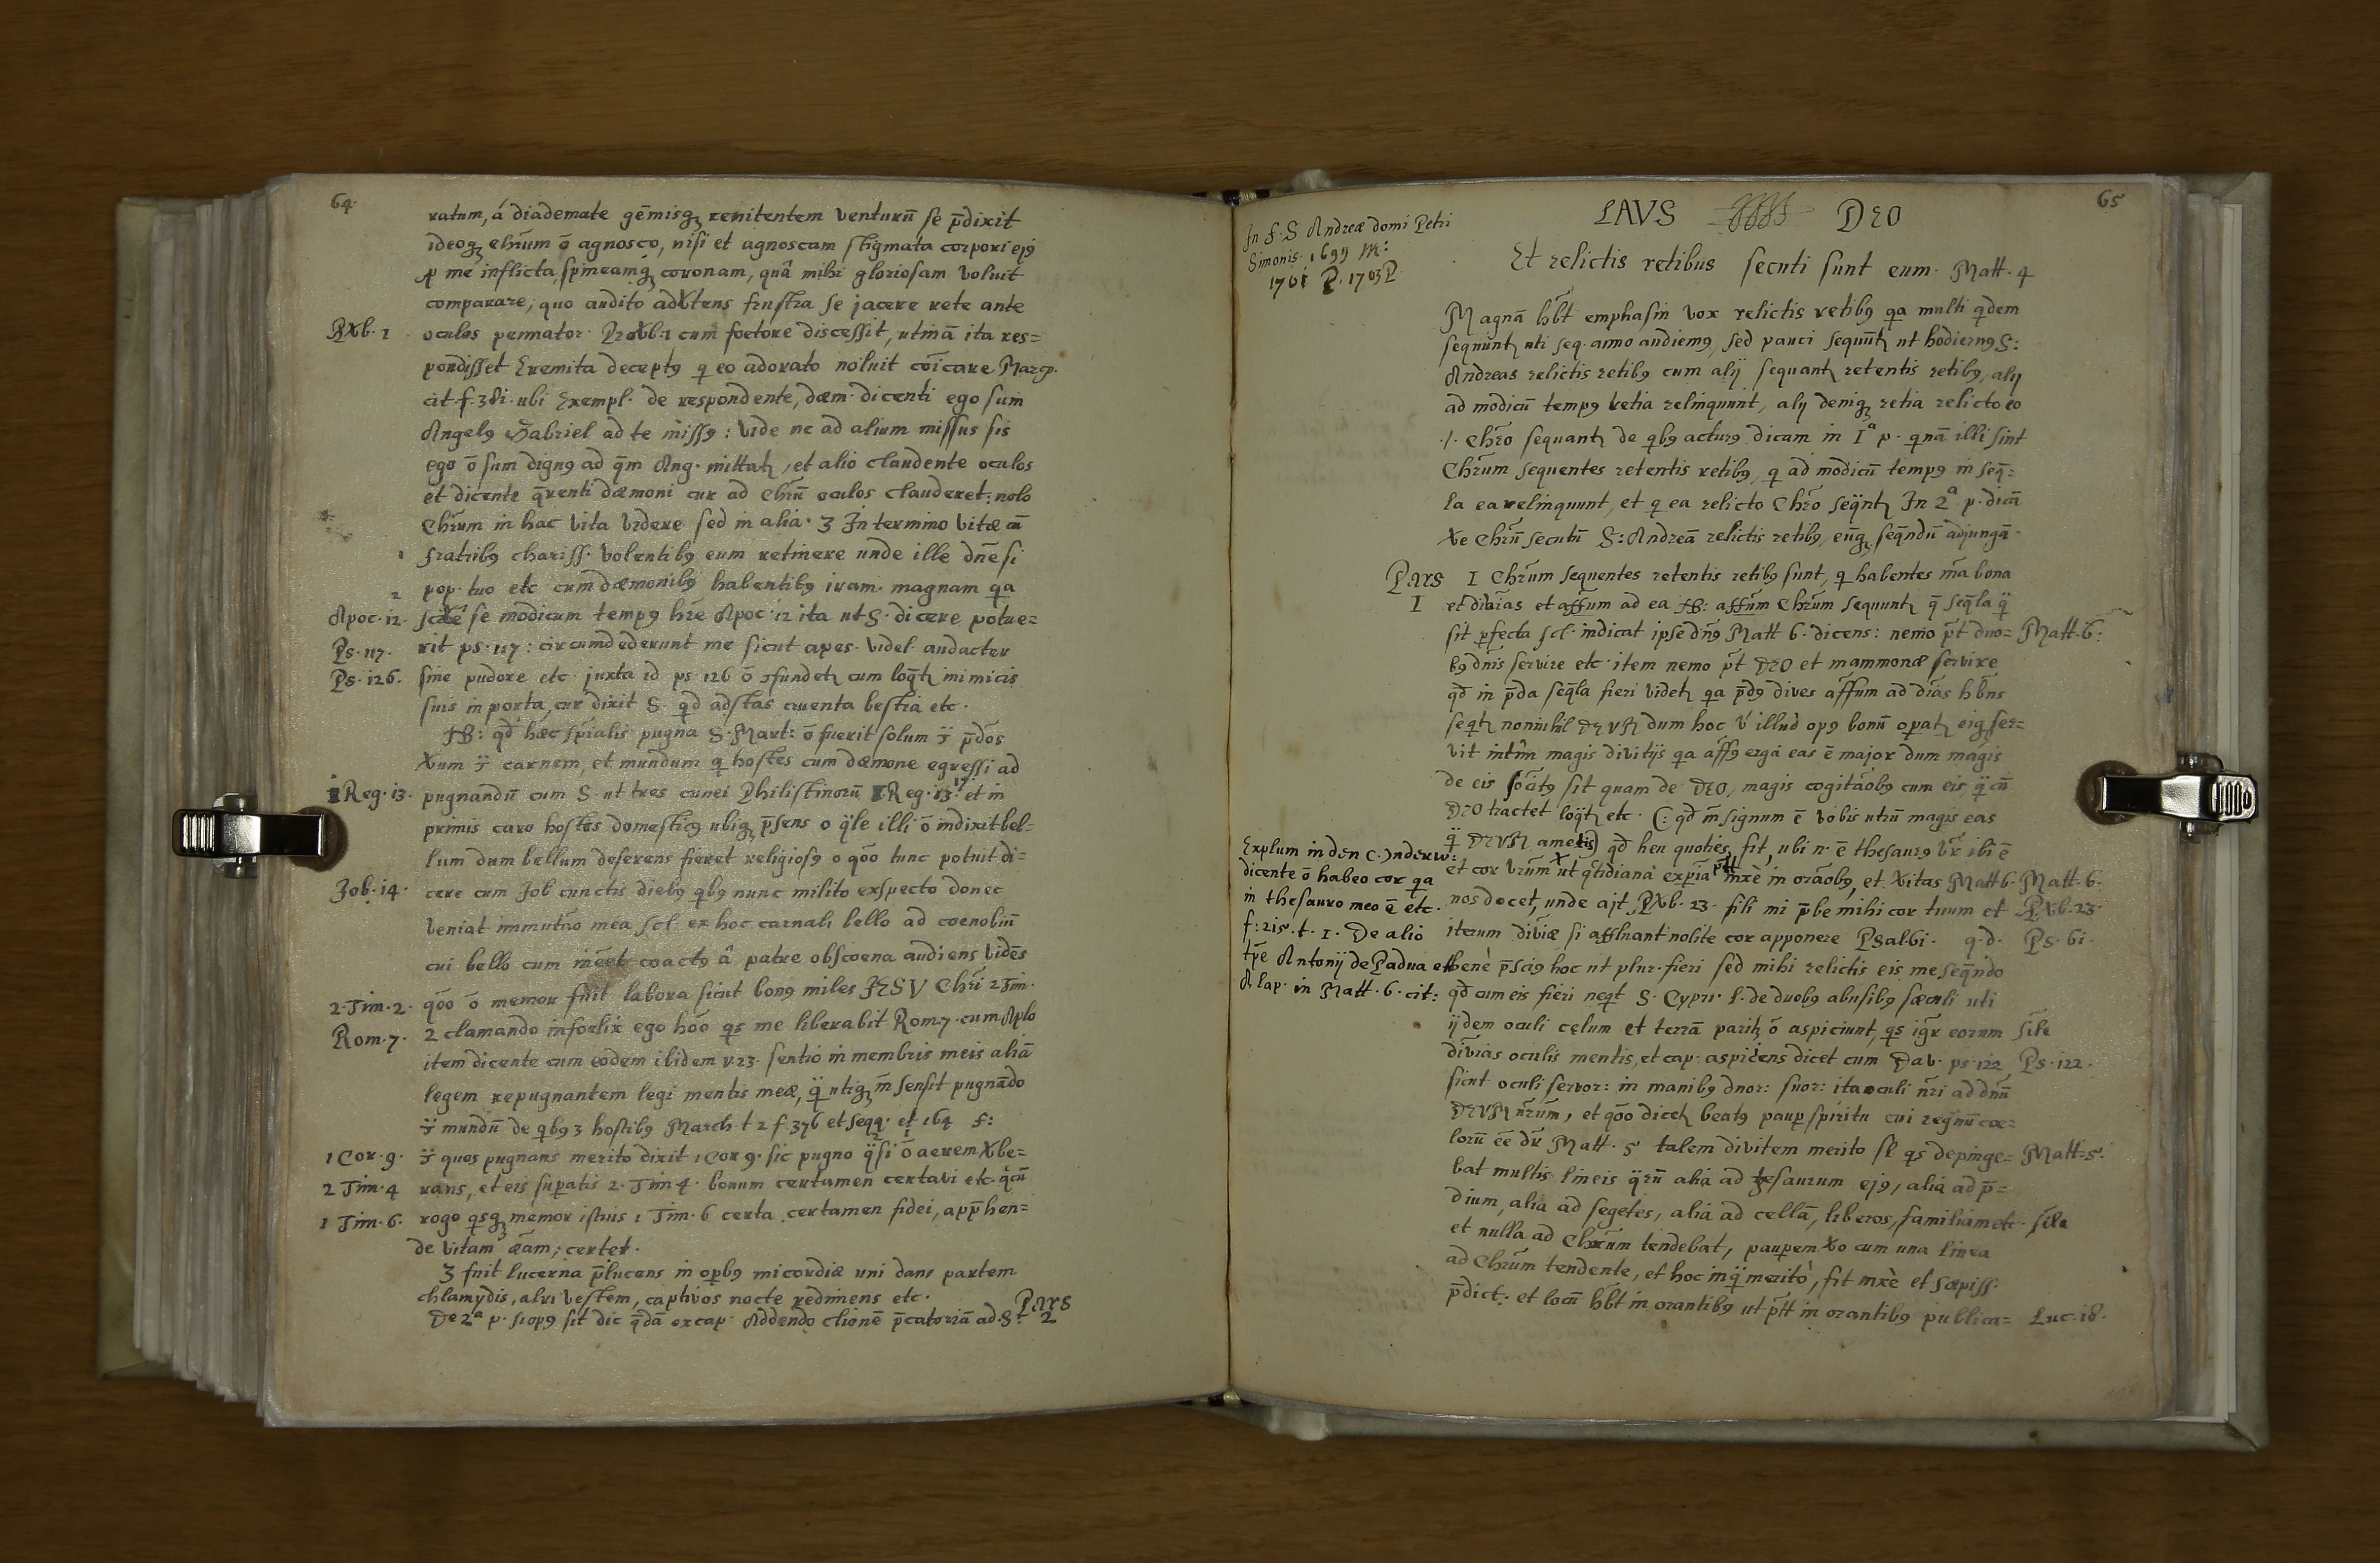 64.
ratum, á diademate gēmisq₃ renitentem venturū se p̄dixit
ideoq₃ Chr̄um ō agnosco, nisi et agnoscam stigmata corpori ejꝰ
ꝓ me inflicta, spineamq₃ coronam, quâ mihi gloriosam voluit
comparare; quo audito frustra se jacere rete ante
PXb. 1 oculos pennator. ProXb: 1 cum foetore discessit, utinā ita res=
pondisset Eremita deceptꝰ q eo adorato noluit cōicare March.
cit f. 381. ubi Exempl. de respondente, dæm. dicenti ego sum
Angelꝰ Gabriel ad te missꝰ: vide ne ad alium missus sis
ego ō sum dignꝰ ad q̄m Ang. mittatꝛ, et alio claudente oculos
et dicente q̄renti dæmoni cur ad Chr̄ū oculos clauderet: nolo
Chr̄um in hac vita videre sed in alia. 3 In termino vitæ cū
1 fratribꝰ chariss. volentibꝰ eum retinere unde ille dn̄e si
2 pop. tuo etc cum dæmonibꝰ habentibꝰ iram magnam qa
Apoc. 12. se modicum tempꝰ hr̄e Apoc. 12 ita ut S. dicere potue=
Ps. 117. rit ps. 117: circumdederunt me sicut apes. videl. audacter
Ps. 126. sine pudore etc. juxta id ps 126 ō ɔfundetꝛ cum loq̄tꝛ inimicis
suis in porta, cur dixit S. qd adstas cruenta bestia etc.
NB: qd hæc sp̄ialis pugna S. Mart: ō fuerit solum ɔ̈ p̄dos
Xum ɔ̈ carnem, et mundum q hostes cum dæmone egressi ad
1 Reg. 13. pugnandū cum S. ut tres cunei Philistinorū 1 Reg. 13. 17 et in
primis caro hostes domesticꝰ ubiq₃ p̄sens o q̈le illi ō indixit bel=
lum dum bellum deserens fieret religiosꝰ o qōo tunc potuit di=
Job. 14. cere cum Job cunctis diebꝰ qbꝰ nunc milito exspecto donec
veniat immutāo mea scl. ex hoc carnali bello ad coenobiū
cui bello cum inēet coactꝰ â patre obscoena audiens vidēs
2. Tim. 2. qōo ō memor fuit labora sicut bonꝰ miles JESV Chr̄i 2 Tim.
Rom. 7. 2 clamando infoelix ego hōo qs me liberabit Rom. 7. cum Aplo
item dicente cum eodem ibidem v. 23. sentio in membris meis aliā
legem repugnantem legi mentis meæ, q̈ utiq₃ m̄ sensit pugnādo
ɔ̈ mundū de qbꝰ 3 hostibꝰ March t 2 f. 376 et seqq. et 164 f:
1 Cor. 9. ɔ̈ quos pugnans merito dixit 1 Cor 9. sic pugno q̈si ō aerem Xbe=
2 Tim. 4 rans, et eis supatis 2. Tim 4. bonum certamen certavi etc. q̈cū
1 Tim. 6. rogo qsq₃ memor istius 1 Tim. 6 certa certamen fidei, app̄hen=
de vitam ǣam; certet.
3 fuit lucerna p̄lucens in opbꝰ micordiæ uni dans partem
chlamydis, alvi vestem, captivos nocte redimens etc.
De 2ª p. si opꝰ sit dic q̄dā ex cap. Addendo ctionē p̄catoriā ad S. Pars 2
65
In F. S Andreæ domi Petri
Simonis. 1699 M:
1701 P. 1703 P.
LAVS DEO
Et relictis retibus secuti sunt eum. Matt. 4
Magnā hb̄t emphasin vox relictis retibꝰ qa multi qdem
sequuntꝛ uti seq. anno audiemꝰ, sed pauci sequūtꝛ ut hodiernꝰ S:
Andreas relictis retibꝰ cum alij sequantꝛ retentis retibꝰ, alij
ad modicū tempꝰ retia relinquunt, alij deniq₃ retia relicto eo
./. Chr̄o sequantꝛ de qbꝰ acturꝰ dicam in Iª p. qnā illi sint
Chr̄um sequentes retentis retibꝰ, q ad modicū tempꝰ in seq̄=
la ea relinquunt, et q ea relicto Chr̄o seq̄ntꝛ In 2ª p. dicā
Xe Chr̄ū secutū S: Andreā relictis retibꝰ, eūq₃ seq̄ndū adjungā.
Pars I Chr̄um sequentes retentis retibꝰ sunt, q habentes m̄a bona
I et divīas et affūm ad ea NB: affūm Chr̄um sequuntꝛ q̄ seq̄la q̈
sit pfecta scl. indicat ipse dn̄ꝰ Matt 6. dicens: nemo p̄t duo= Matt. 6:
bꝰ dn̄is servire etc. item nemo p̄t DEO et mammonæ servire
qd in p̄da seq̄la fieri videtꝛ qa p̄dꝰ dives affūm ad dīas hb̄ns
seqtꝛ nonnihil DEVM dum hoc v̄ illud opꝰ bonū opatꝛ eiq₃ ser=
vit int̄im magis divitijs qa affꝰ erga eas ē major dum magis
de eis sit quam de DEO, magis cogitāobꝰ cum eis q̈ cū
DEO tractet loq̈tꝛ etc. C: qd m̄ signum ē vobis utrū magis eas
q̈ DEVM ametis) qd heu quoties fit, ubi n. ē thesaurꝰ vr̄ ibi ē
et cor vr̄um ut qtidiana expīa p̄tt mxè in orāobꝰ, et Xitas Matt 6. Matt. 6.
nos docet, unde ajt PXb. 23. fili mi p̄be mihi cor tuum et PXb. 23.
Explum in den C. onder w:
dicente ō habeo cor qa
in thesauro meo ē etc.
f: 215. t. I. De alio
tp̄e Antonij de Padua et
A lap. in Matt. 6. cit:
iterum diviæ si affluant nolite cor apponere Psal 61. q. d. Ps. 61.
benè p̄sciꝰ hoc ut plur. fieri sed mihi relictis eis me seq̄ndo
qd cum eis fieri neqt S. Cypri. l. de duobꝰ abusibꝰ sæculi uti
ijdem oculi celum et terrā paritꝛ ō aspiciunt, qs igr eorum sīle
divīas oculis mentis, et cap. aspiciens dicet cum Dav. ps. 122, Ps. 122.
sicut oculi servor: in manibꝰ dnor: suor: ita oculi nr̄i ad dnū
DEVM nr̄um, et qōo dicetꝛ beatꝰ paup spiritu cui regnū cœ=
lorū ēe dr̄ Matt. 5 talem divitem merito sl qs depinge= Matt. 5.
bat multis lineis q̈rū alia ad thesaurum ejꝰ, alia ad p̄=
dium, alia ad segetes, alia ad cellā, liberos, familiam etc. sīle
et nulla ad Chr̄um tendebat, paupem Xo cum una linea
ad Chr̄um tendente, et hoc inq̈ meritò, fit mxè et sæpiss.
p̄dict. et locū hb̄t in orantibꝰ ut p̄tt in orantibꝰ publica= Luc. 18.